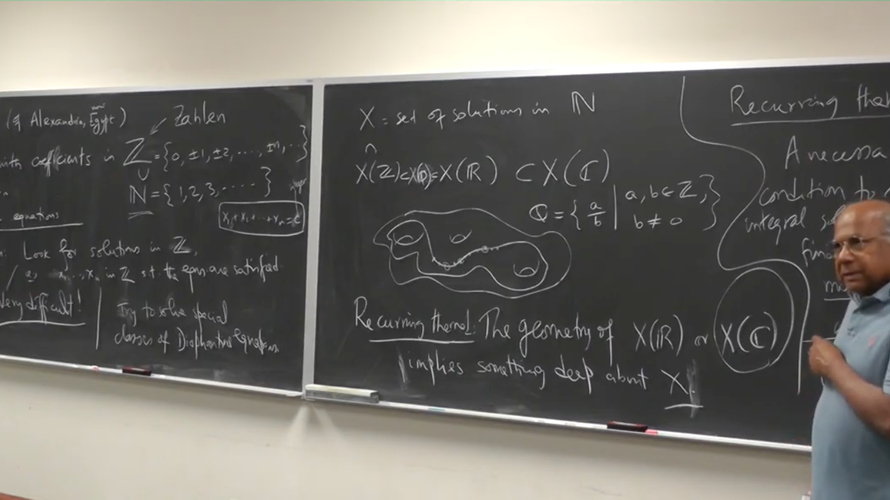 (of Alexandria, Egypt)
Zahlen
with coefficients in ℤ = {0, ±1, ±2, ...., ±n, ..}
∪
ℕ = {1, 2, 3, .....}
equations
Look for solutions in ℤ,
x_n in ℤ s.t. the eqns are satisfied
Very difficult!
Try to solve special
classes of Diophantine Equations
X = set of solutions in ℕ
∩
X(ℤ) ⊂ X(ℚ) ⊂ X(ℝ) ⊂ X(ℂ)
ℚ = {a/b | a, b ∈ ℤ, b ≠ 0}
Recurring theme 1: The geometry of X(ℝ) or X(ℂ)
implies something deep about X.
Recurring
A necessa
condition to
integral
fin